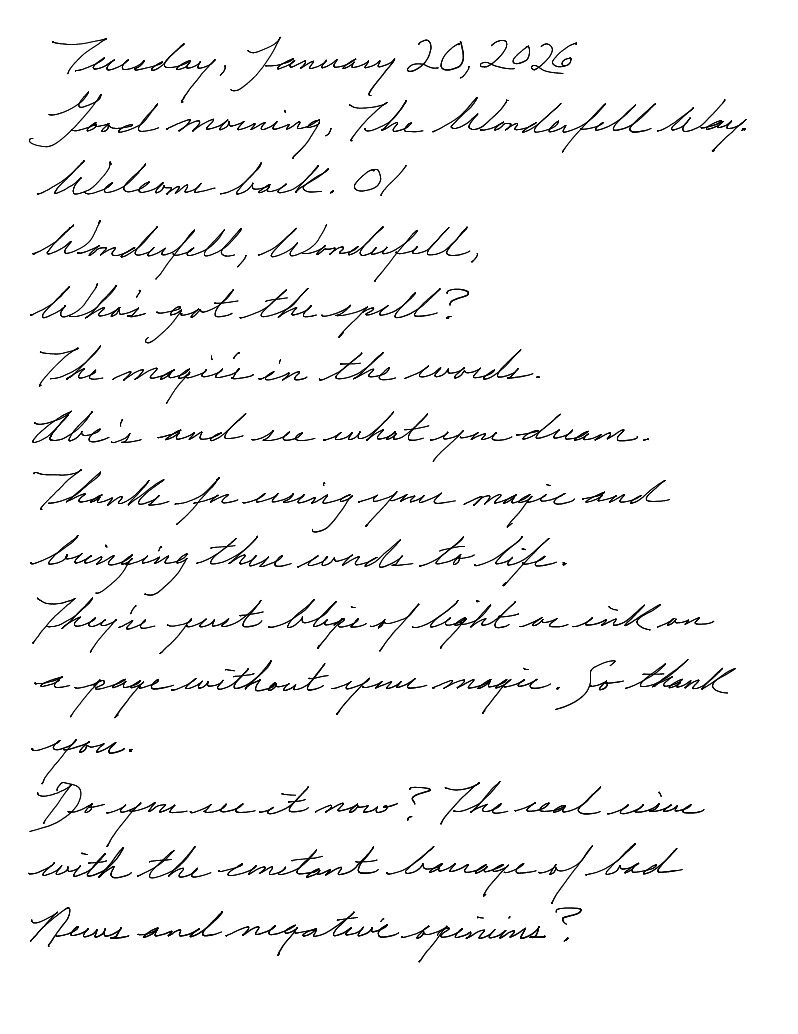 Tuesday, January 20, 2026
Good morning, The Wonderfell Way.
Welcome back. 01
Wonderfell, Wonderfell,
Who's got the spell?
The magic's in the words.
Abc's and see what you dream.
Thanks for using your magic and
bringing these words to life.
They're just blips of light or ink on
a page without your magic. So thank
you.
Do you see it now? The real issue
with the constant barrage of bad
News and negative opinions?